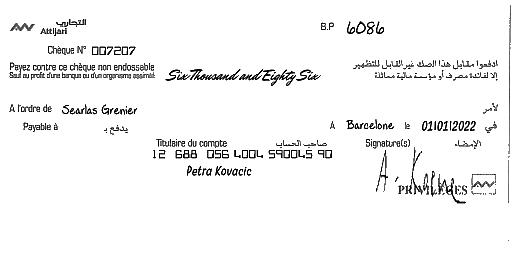 التجاري
Attijari
B.P 6086
Chèque N° 007207
Payez contre ce chèque non endossable
Sauf au profit d'une banque ou d'un organisme assimilé
Six Thousand and Eighty Six
ادفعوا مقابل هذا الصك غير القابل للتظهير
إلا لفائدة مصرف أو مؤسسة مالية مماثلة
A l'ordre de Searlas Grenier
لأمر
Payable à
يدفع بـ
A Barcelone le 01/01/2022 في
Titulaire du compte صاحب الحساب
Signature(s) الإمضاء
12 688 056 4004 590045 90
Petra Kovacic
PRIVILEGES